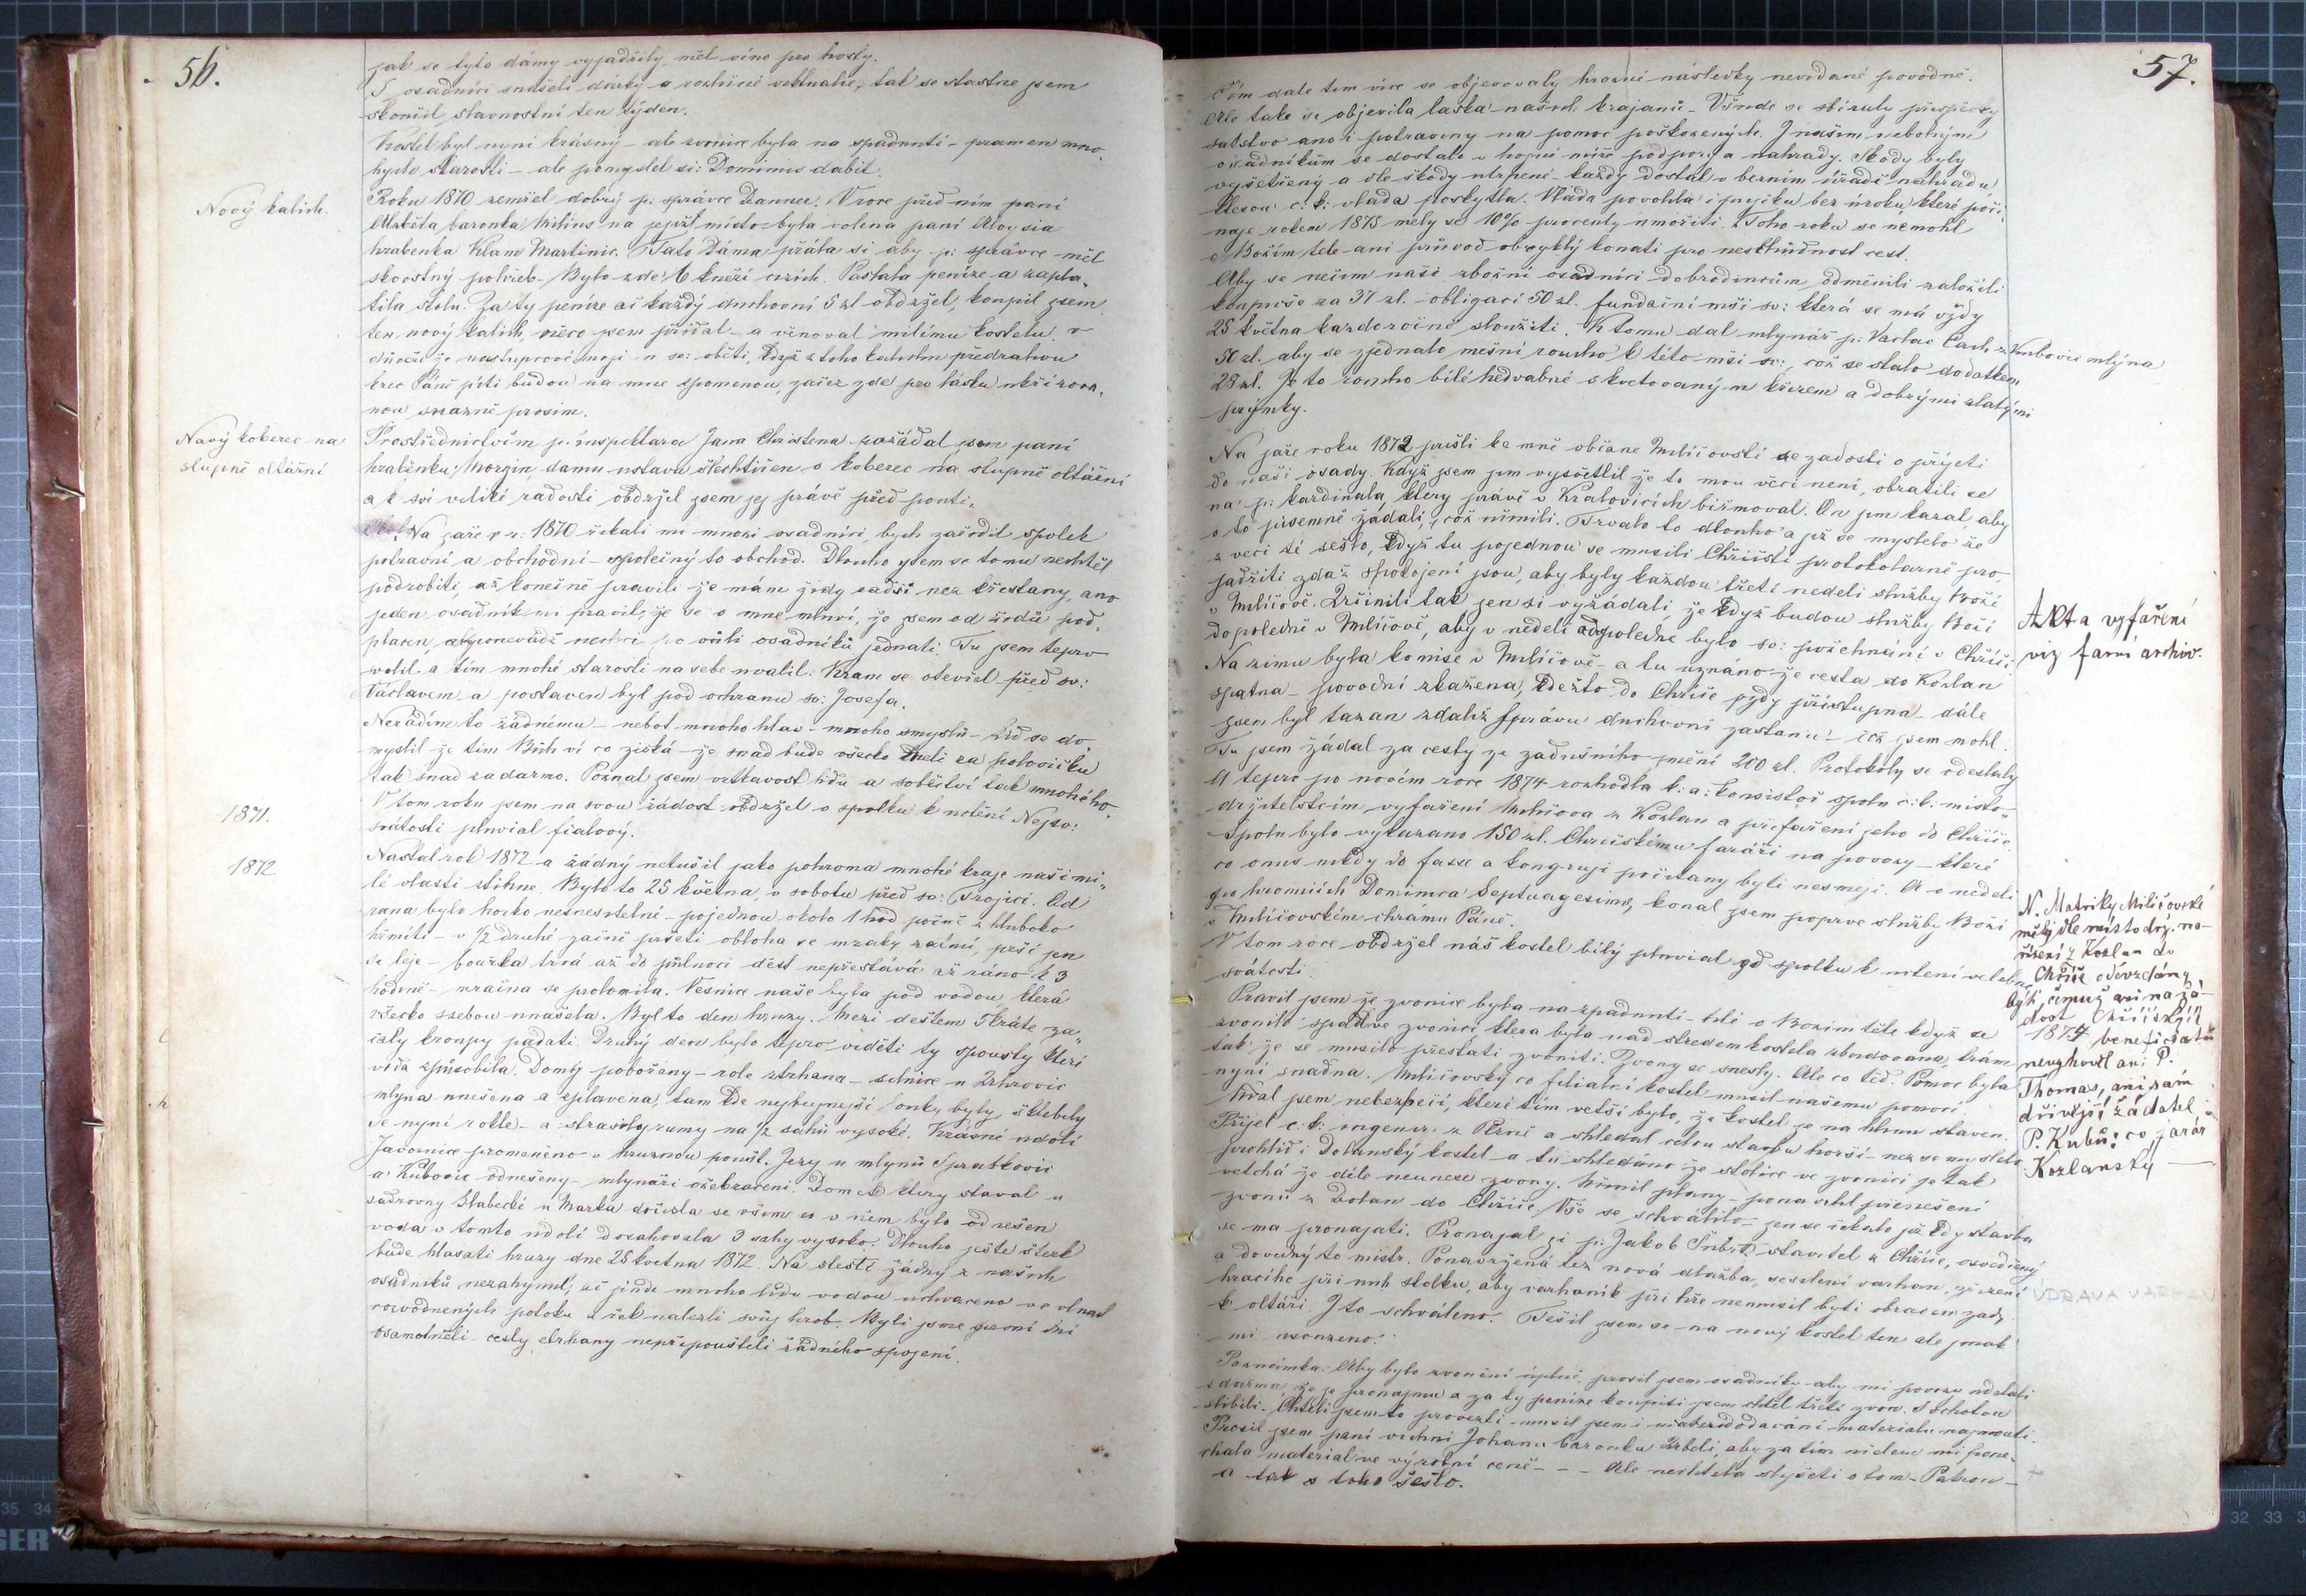 56.
jak se tyto dámy vyjádřily, měl víno pro hosty.
I osadníci snášeli dárky a rozličné viktualie, tak se stastne jsem
skončil slavnostní ten týden.
Kostel byl nyní krásný – ale zvonice byla na spadnutí – pramen mno-
hých starostí – ale pomyslel si: Dominus dabit.
Nový kalich.
Roku 1870 zemřel dobrý p. správce Dannec. V roce před ním paní
Alžběta baronka Milius na jejíž místo byla volena paní Aloysia
hraběnka Klam Martinic. Tato Dáma přála si aby p: správce měl
skvostný pohřeb – Bylo zde 6 kněží cizích. Poslala peníze a zapla-
tila štolu. Za ty peníze až každý duchovní 5 zl obdržel, koupil jsem
ten nový kalich, něco jsem přidal – a věnoval milímu kostelu v
důvěře že nastupcové moji u sv: oběti, když z toho kalichu předrahou
krev Páně píti budou na mne spomenou, začež zde pro lásku nkší zoon-
nou snažně prosim.
Nový koberec na
stupně oltářní
Prostřednictvím p. inspektara Jana Christena požádal jsem paní
hraběnku Morzin, damu ustavu šlechtičen o koberec na stupně oltářní
a k své veliké radosti obdržel jsem jej právě před pouti.
Na jaře r: 1870 říkali mi mnozi osadníci, bych zařídil spolek
potravní a obchodní – společný to obchod. Dlouho jsem se tomu nechtěl
podrobiti, až konečně pravili že mám židy radši nez křestany, ano
jeden osadník mi pravil, že se o mne mluví, že jsem od židů pod-
placen, a poněvadž nechci po vůli osadníků jednati. Tu jsem tepro
svolil a tím mnohé starosti na sebe uvalil. Kram se otevřel před sv:
Václavem a postaven byl pod ochranu sv: Josefa.
Neradím to žádnému – nebot mnoho hlav – mnoho smyslů – Lid se do-
myslil že tím Bůh ví co získá – že snad bude všecko míti za polovičku
tak snad zadarmo. Poznal jsem vrtkavost lidu a sobectví tak mnohého.
1871.
V tom roku jsem na svou žádost obdržel o spolku k uctění Nejsv:
svátosti pluvial fialový.
1872
Nastal rok 1872 a žádný netušil jako pohroma mnohé kraje naší mi-
lé vlasti stihne. Bylo to 25 května, v sobotu před sv: Trojici. Od
rana bylo horko nesnesitelné – pojednou okolo 1 hod počne z hluboko
hřmíti – v 1/2 druhé začně pršeti obloha se mraky zatmí, prší jen
se leje – bouřka trvá až do půlnoci děšt nepřestává až ráno k 3
hodině – mračna se protomila. Vesnice naše byla pod vodou, která
všecko ssebou unášela. Byl to den hruzy. Mezi deštem 5kráte za-
čaly kroupy padati. Druhý den bylo tepro viděti ty spousty které
voda způsobila. Domy pobořeny – role strhana – silnice u Zhrovic
mlyna unešena a splavena, tam kde nejbujnejší louky byly, šklebily
se nyní rokle – a strašity rumy na 1/2 sáhu vysoké. Krásné udolí
Javornice proměněno v hruznou poušt. Jezy u mlynů Spratkovic
a Kubovic odnešeny – mlynáři ožebračeni. Dom který staval u
sádrovny Hlubecké u Marka dočista se vším co v něm bylo odnešen
voda v tomto udolí docahovala 3 sahy vysoko. Dlouho ještě šterk
bude hlasati hruzy dne 25 kvetna 1872. Na štestí žádny z našich
osadníků nezahynul, ač jinde mnoho lidu vodou uchvaceno ve vlnach
rozvodnených potoku a řek nalezli svůj hrob. Byli jsme první dni
osamotněli – cesty strhany nepřipouštěli žádného spojení.
57.
Čím dale tim více se objevovaly hrozné následky nevídané povodně.
Ale take se objevila laska našich krajanů – Všude se sbíraly příspěvky
satstvo ano i potraviny na pomoc poškozených. I našim nebohým
osadníkům se dostalo v hojné míře podpory a nahrady. Škody byly
vyšetřeny a dle škody utrpení každý dostal v berním úřadě náhradu
kterou c. k: vlada poskytla. Vláda povolila i pujčku bez uroku, které poči-
naje rokem 1875 měly se 10% procenty umořiti. Toho roku se nemohl
o Božím tele ani průvod obvyklý konati pro neschůdnost cest.
Aby se nečim naši zbožní osadníci dobrodincům odměnili založili
koupivše za 37 zl. obligací 50 zl. fundační mši sv: která se má vždy
25 května každoročně sloužiti. K tomu dal mlynář p: Vaclav Čech z Kubovic mlýna
50 zl. aby se zjednalo mešní roucho k této mši sv:, což se stalo dodatkem
28 zl. Je to roucho bílé hedvabné s kvetovaným křizem a dobrými zlatými
prýmky.
Na jaře roku 1872 prišli ke mně občane Milíčovští se zadosti o přijeti
do naší osady. Když jsem jim vysvětlil že to mou věcí není, obratili se
na p: kardinala, ktery právě v Kralovicích biřmoval. On jim kazal, aby
o to písemně žádali, což učinili. Trvalo to dlouho a již se myslelo že
z veci té sešlo, když tu pojednou se musili Chříčtí protokolarně pro-
jadřiti zdaž spokojeni jsou, aby byly každou třetí nedeli služby Boží
v Milíčově. Učinili tak jen si vyžádali, že když budou služby Boží
dopoledně v Milíčově, aby v neděli odpoledne bylo sv: požehnání v Chříči.
Akta vyfaření
viz farní archiv.
Na zimu byla komise v Milíčově – a tu uznáno že cesta do Kozlan
špatna – povodní zkažena, kdežto do Chříče vždy přístupna – dále
jsem byl tazan zdaliž správu duchovní zastanu! – což jsem mohl.
Tu jsem žádal za cesty ze zadušního jmění 200 zl. Protokoly se odeslaly
A tepro po novém roce 1874 rozhodla k: a: konsistoř spolu c: k: místo-
držitelstvím vyfaření Milíčova z Kozlan a přifaření jeho do Chříče.
Spolu bylo vykazano 150 zl. Chříčskému faráři na povozy – které
co onus nikdy do fasse a kongruji počitany byti nesmeji. A o nedeli
po hromicích Dominica Septuagesima, konal jsem poprve služby Boží
v Milíčovském chrámu Páně.
N. Matriky Milíčovské
měly dle místodrž. na-
řízení z Kozlan do
Chříče odevzdány
býti, čemuž ani na žá-
dost Chříčských
1874 beneficiatů
nevyhověl ani P.
Thomas, ani sám
dřivější žadatel
P. Kubů: co farář
Kozlanský –
V tom roce obdržel náš kostel bílý pluvial od spolku k uctení velebne
svátosti.
Pravil jsem že zvonice byla na spadnutí – kdé o Bozim těle když se
zvonilo spadne zvonici, ktera byla nad stredem kostela zbudovana, trám
tak že se musilo přestati zvoniti. Zvony se snesly. Ale co ted. Pomoc byla
nyní snadna. Milíčovský co filialní kostel musil našemu pomoci.
Udal jsem nebezpečí, které tím vetší bylo, že kostel je na hlinu staven.
Přijel c. k: ingenieur z Plzně a shledal celou stavbu horší – nez se myslelo
prohlidl i Dolanský kostel – a tu shledáno že stolice ve zvonici je tak
vetchá že déle neunese zvony. Učinil plany – ponavrhl přenešení
zvonů z Dolan do Chříče. Vše se schválilo – jen se čekalo již kdy stavba
se ma pronajati. Pronajal ji p: Jakob Šnbrt, stavitel z Chříče, osvědčený
a dovedný to mistr. Ponavržená též nová dlažba, sesilení varhan, zřízení
hracího při nich stolku, aby varhaník při hře nemusil byti obracen zady
k oltáři. I to schváleno. Tešil jsem se na nový kostel ten ale jinak
mi usouzeno.
ÚDRAVA VARHAN
Poznámka: Aby bylo zvonění úplné, prosil jsem osadníky aby mi povozu udelali
zdarma, že je pronajmu a za ty peníze koupiti jsem chtěl třetí zvon. S ochotou
slíbili. Chtěli jsem to provesti – musil jsem i dodavání materialu najmouti.
Prosil jsem paní vrchní Johanu baronku, aby za tím učelem mi pone-
chala material ve výrobní ceně – – – Ale nechtela slyšeti o tom – Patron –
a tak s toho sešlo.